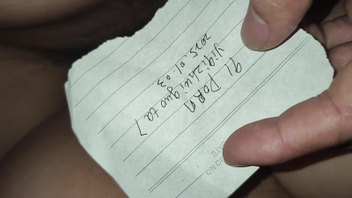 91 PORN
yiqizhuiguota7
2025.01.03